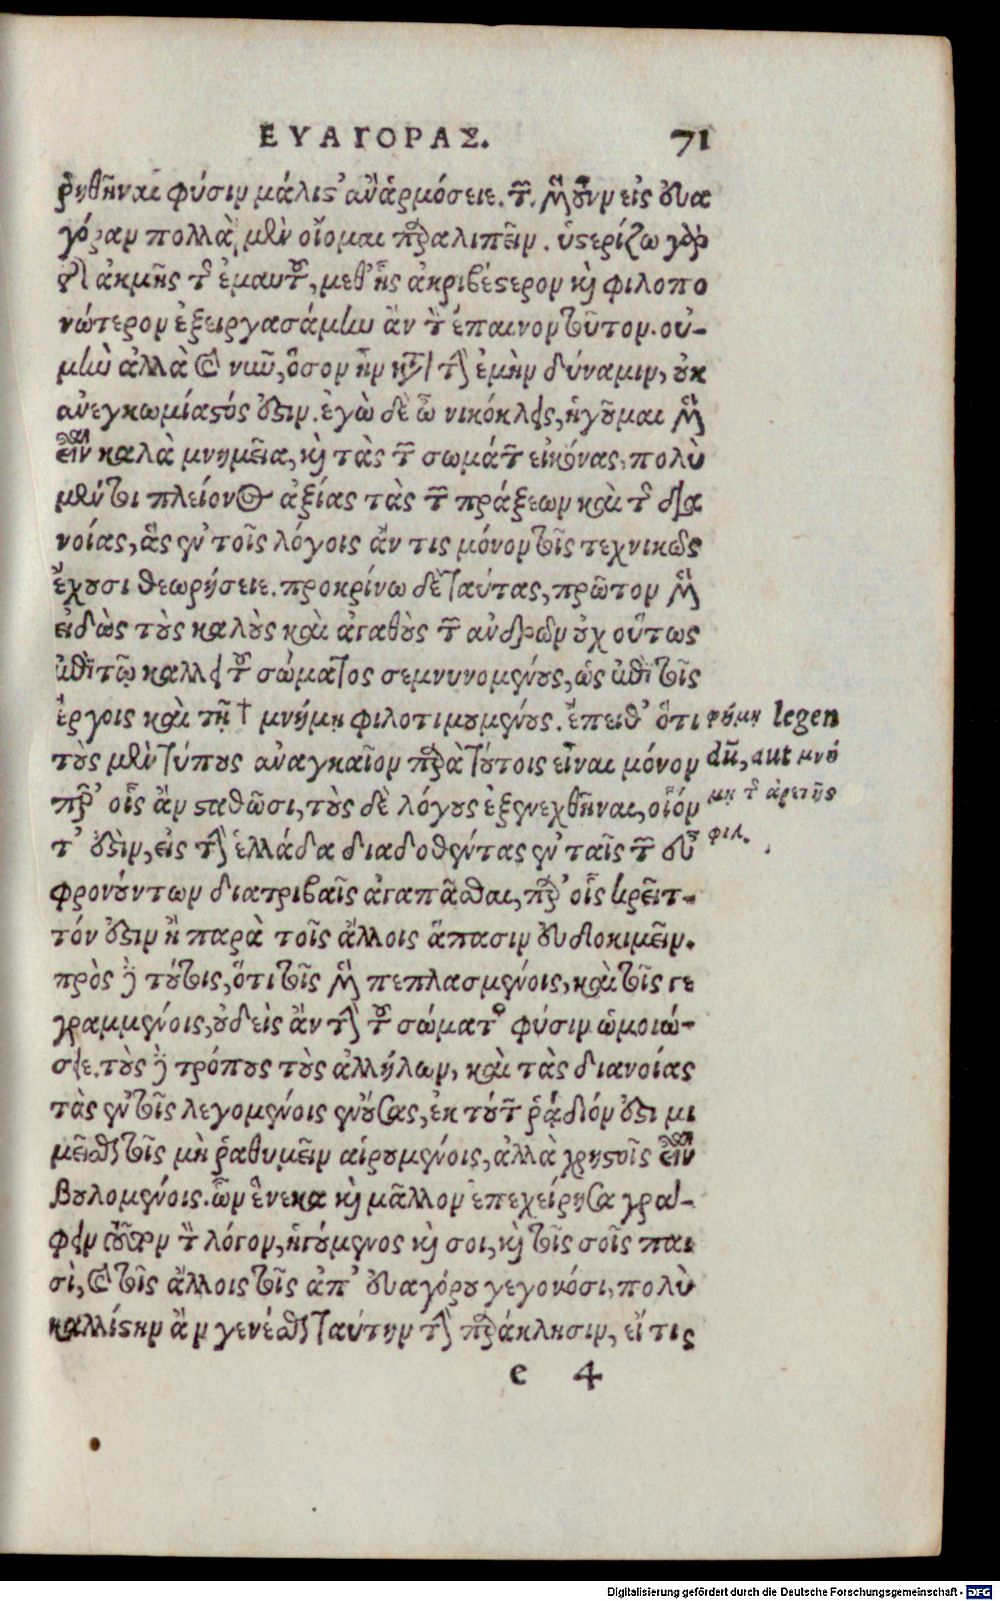 ΕΥΑΓΟΡΑΣ. 71
ῥηθῆναι φύσιν μάλιστ' ἂν ἁρμόσειε. τῶν μὲν οὖν εἰς εὐα
γόραν πολλὰ μὲν οἴομαι παραλιπεῖν. ὑστερίζω γὰρ
τῆς ἀκμῆς τῆς ἐμαυτοῦ, μεθ' ἧς ἀκριβέστερον καὶ φιλοπο
νώτερον ἐξειργασάμην ἂν τὸν ἔπαινον τοῦτον. οὐ-
μὴν ἀλλὰ καὶ νῦν, ὅσον ἦν κατὰ τὴν ἐμὴν δύναμιν, οὐκ
ἀνεγκωμίαστός ἐστιν. ἐγὼ δὲ ὦ νικόκλεις, ἡγοῦμαι μὲν
εἶναι καλὰ μνημεῖα, καὶ τὰς τῶν σωμάτων εἰκόνας, πολὺ
μέντοι πλείονος ἀξίας τὰς τῶν πράξεων καὶ τῆς δια
νοίας, ἃς ἐν τοῖς λόγοις ἄν τις μόνον τοῖς τεχνικῶς
ἔχουσι θεωρήσειε. προκρίνω δὲ ταύτας, πρῶτον μὲν
εἰδὼς τοὺς καλοὺς καὶ ἀγαθοὺς τῶν ἀνδρῶν οὐχ οὕτως
ἐπὶ τῷ κάλλει τοῦ σώματος σεμνυνομένους, ὡς ἐπὶ τοῖς
ἔργοις καὶ τῇ † μνήμῃ φιλοτιμουμένους. ἔπειθ' ὅτι φήμῃ legen
τοὺς μὲν τύπους ἀναγκαῖον παρὰ τούτοις εἶναι μόνον dū, aut μνή
παρ' οἷς ἂν σταθῶσι, τοὺς δὲ λόγους ἐξενεχθῆναι, οἷόν μῃ τῆς ἀρετῆς
τ' ἐστὶν, εἰς τὴν ἑλλάδα διαδοθέντας ἐν ταῖς τῶν εὖ φιλ.
φρονούντων διατριβαῖς ἀγαπᾶσθαι, παρ' οἷς κρεῖτ-
τόν ἐστιν ἢ παρὰ τοῖς ἄλλοις ἅπασιν εὐδοκιμεῖν.
πρὸς δὲ τούτοις, ὅτι τοῖς μὲν πεπλασμένοις, καὶ τοῖς γε
γραμμένοις, οὐδεὶς ἂν τὴν τοῦ σώματος φύσιν ὡμοιώ-
σειε. τοὺς δὲ τρόπους τοὺς ἀλλήλων, καὶ τὰς διανοίας
τὰς ἐν τοῖς λεγομένοις ἐνούσας, ἐκ τούτων ῥᾴδιόν ἐστι μι
μεῖσθαι τοῖς μὴ ῥαθυμεῖν αἱρουμένοις, ἀλλὰ χρηστοῖς εἶναι
βουλομένοις. ὧν ἕνεκα καὶ μᾶλλον ἐπεχείρησα γρά-
φειν τοῦτον τὸν λόγον, ἡγούμενος καὶ σοι, καὶ τοῖς σοῖς παι
σὶ, καὶ τοῖς ἄλλοις τοῖς ἀπ' εὐαγόρου γεγονόσι, πολὺ
καλλίστην ἂν γενέσθαι ταύτην τὴν παράκλησιν, εἴ τις
e 4
Digitalisierung gefördert durch die Deutsche Forschungsgemeinschaft - DFG